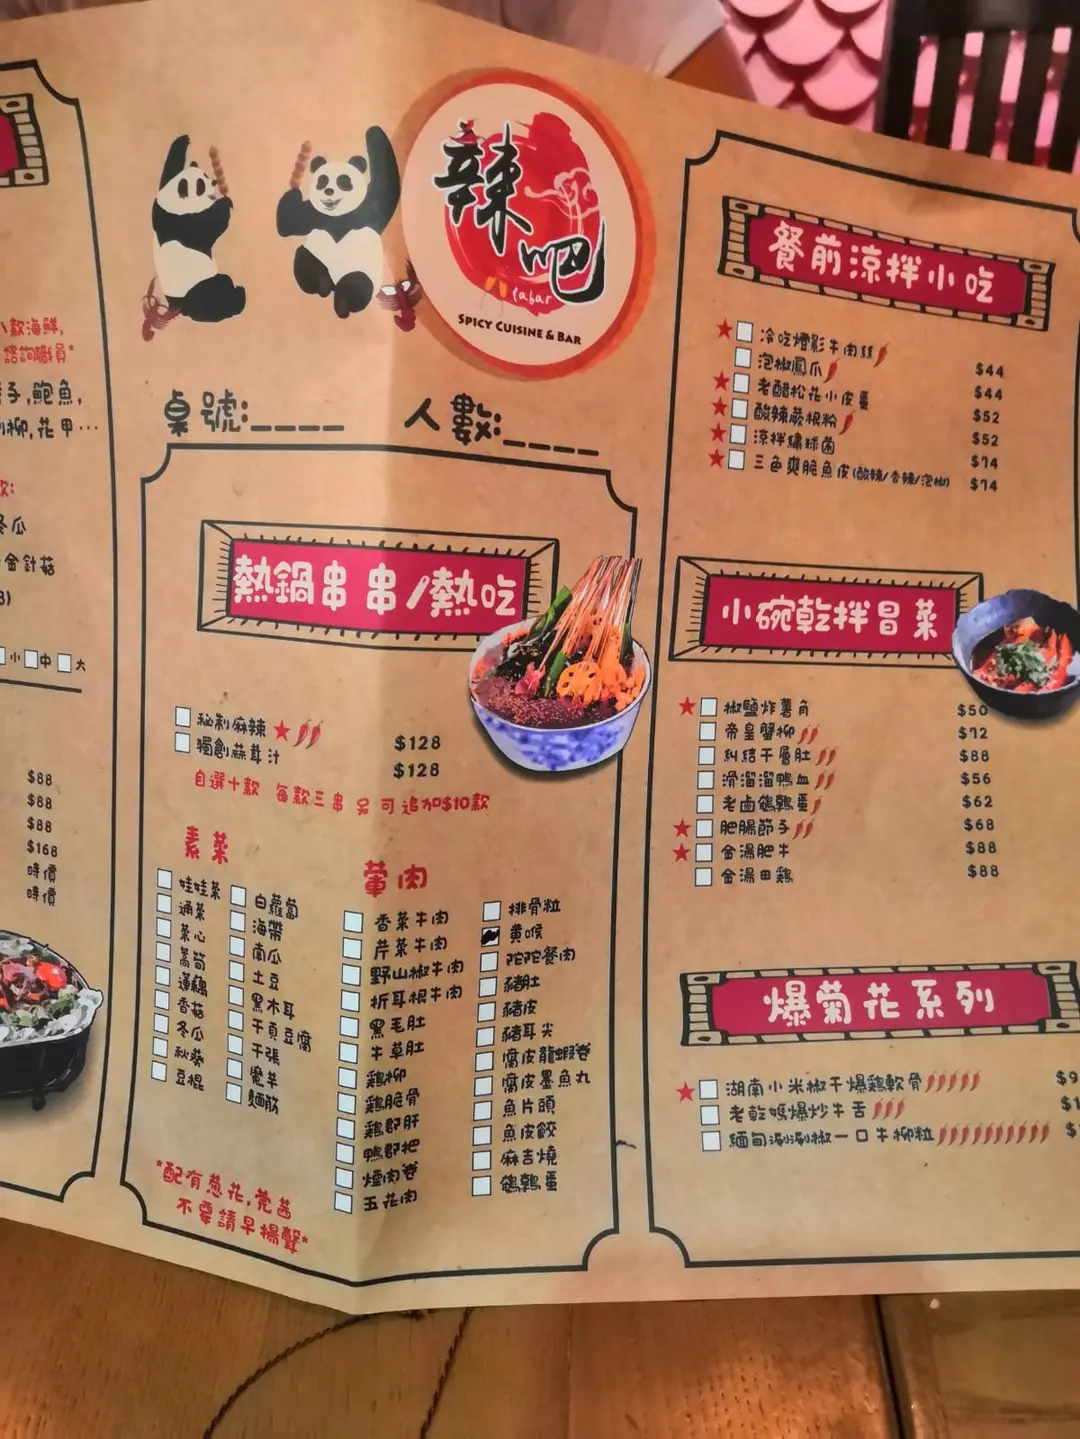 八款海鮮,
諮詢職員*
子,鮑魚,
柳,花甲…
款:
冬瓜
金針菇
小 中 大
$88
$88
$88
$168
時價
時價
辣吧
labar
SPICY CUISINE & BAR
桌號:____ 人數:____
熱鍋串串/熱吃
秘制麻辣 $128
獨創蒜茸汁 $128
自選十款 每款三串 另可追加$10款
素菜
娃娃菜
通菜
菜心
萵筍
蓮藕
香菇
冬瓜
秋葵
豆棍
白蘿蔔
海帶
南瓜
土豆
黑木耳
千頁豆腐
千張
魔芋
麵筋
*配有蔥花,芫茜
不要請早揚聲*
葷肉
香菜牛肉
芹菜牛肉
野山椒牛肉
折耳根牛肉
黑毛肚
牛草肚
鷄柳
鷄脆骨
鷄郡肝
鴨郡把
煙肉卷
五花肉
排骨粒
黃喉
陀陀餐肉
豬肚
豬皮
豬耳尖
腐皮龍蝦卷
腐皮墨魚丸
魚片頭
魚皮餃
麻吉燒
鵪鶉蛋
餐前涼拌小吃
冷吃燈影牛肉絲 $44
泡椒鳳爪 $44
老醋松花小皮蛋 $52
酸辣蕨根粉 $52
涼拌繡球菌 $74
三色爽脆魚皮(酸辣/香辣/泡椒) $74
小碗乾拌冒菜
椒鹽炸薯角 $50
帝皇蟹柳 $72
糾結千層肚 $88
滑溜溜鴨血 $56
老鹵鵪鶉蛋 $62
肥腸節子 $68
金湯肥牛 $88
金湯田鷄 $88
爆菊花系列
湖南小米椒干爆鷄軟骨 $9
老乾媽爆炒牛舌 $1
緬甸涮涮椒一口牛柳粒 $